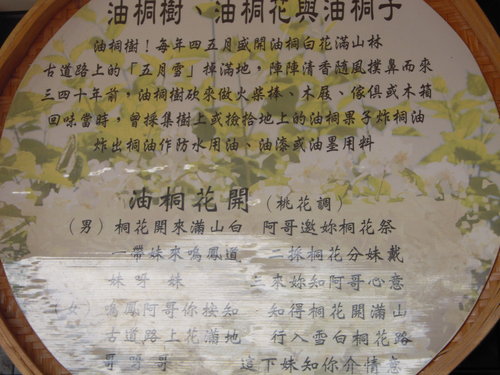 油桐樹、油桐花與油桐子
油桐樹！每年四五月盛開油桐白花滿山林
古道路上的「五月雪」掉滿地，陣陣清香隨風撲鼻而來
三四十年前，油桐樹砍來做火柴棒、木屐、傢俱或木箱
回味當時，曾採集樹上或撿拾地上的油桐果子炸桐油
炸出桐油作防水用油、油漆或油墨用料
油桐花開（桃花調）
（男）桐花開來滿山白 阿哥邀妳桐花祭
一帶妹來鳴鳳道 二採桐花分妹戴
妹呀妹 三來妳知阿哥心意
（女）鳴鳳阿哥你按知 知得桐花開滿山
古道路上花滿地 行入雪白桐花路
哥呀哥 這下妹知你介情意